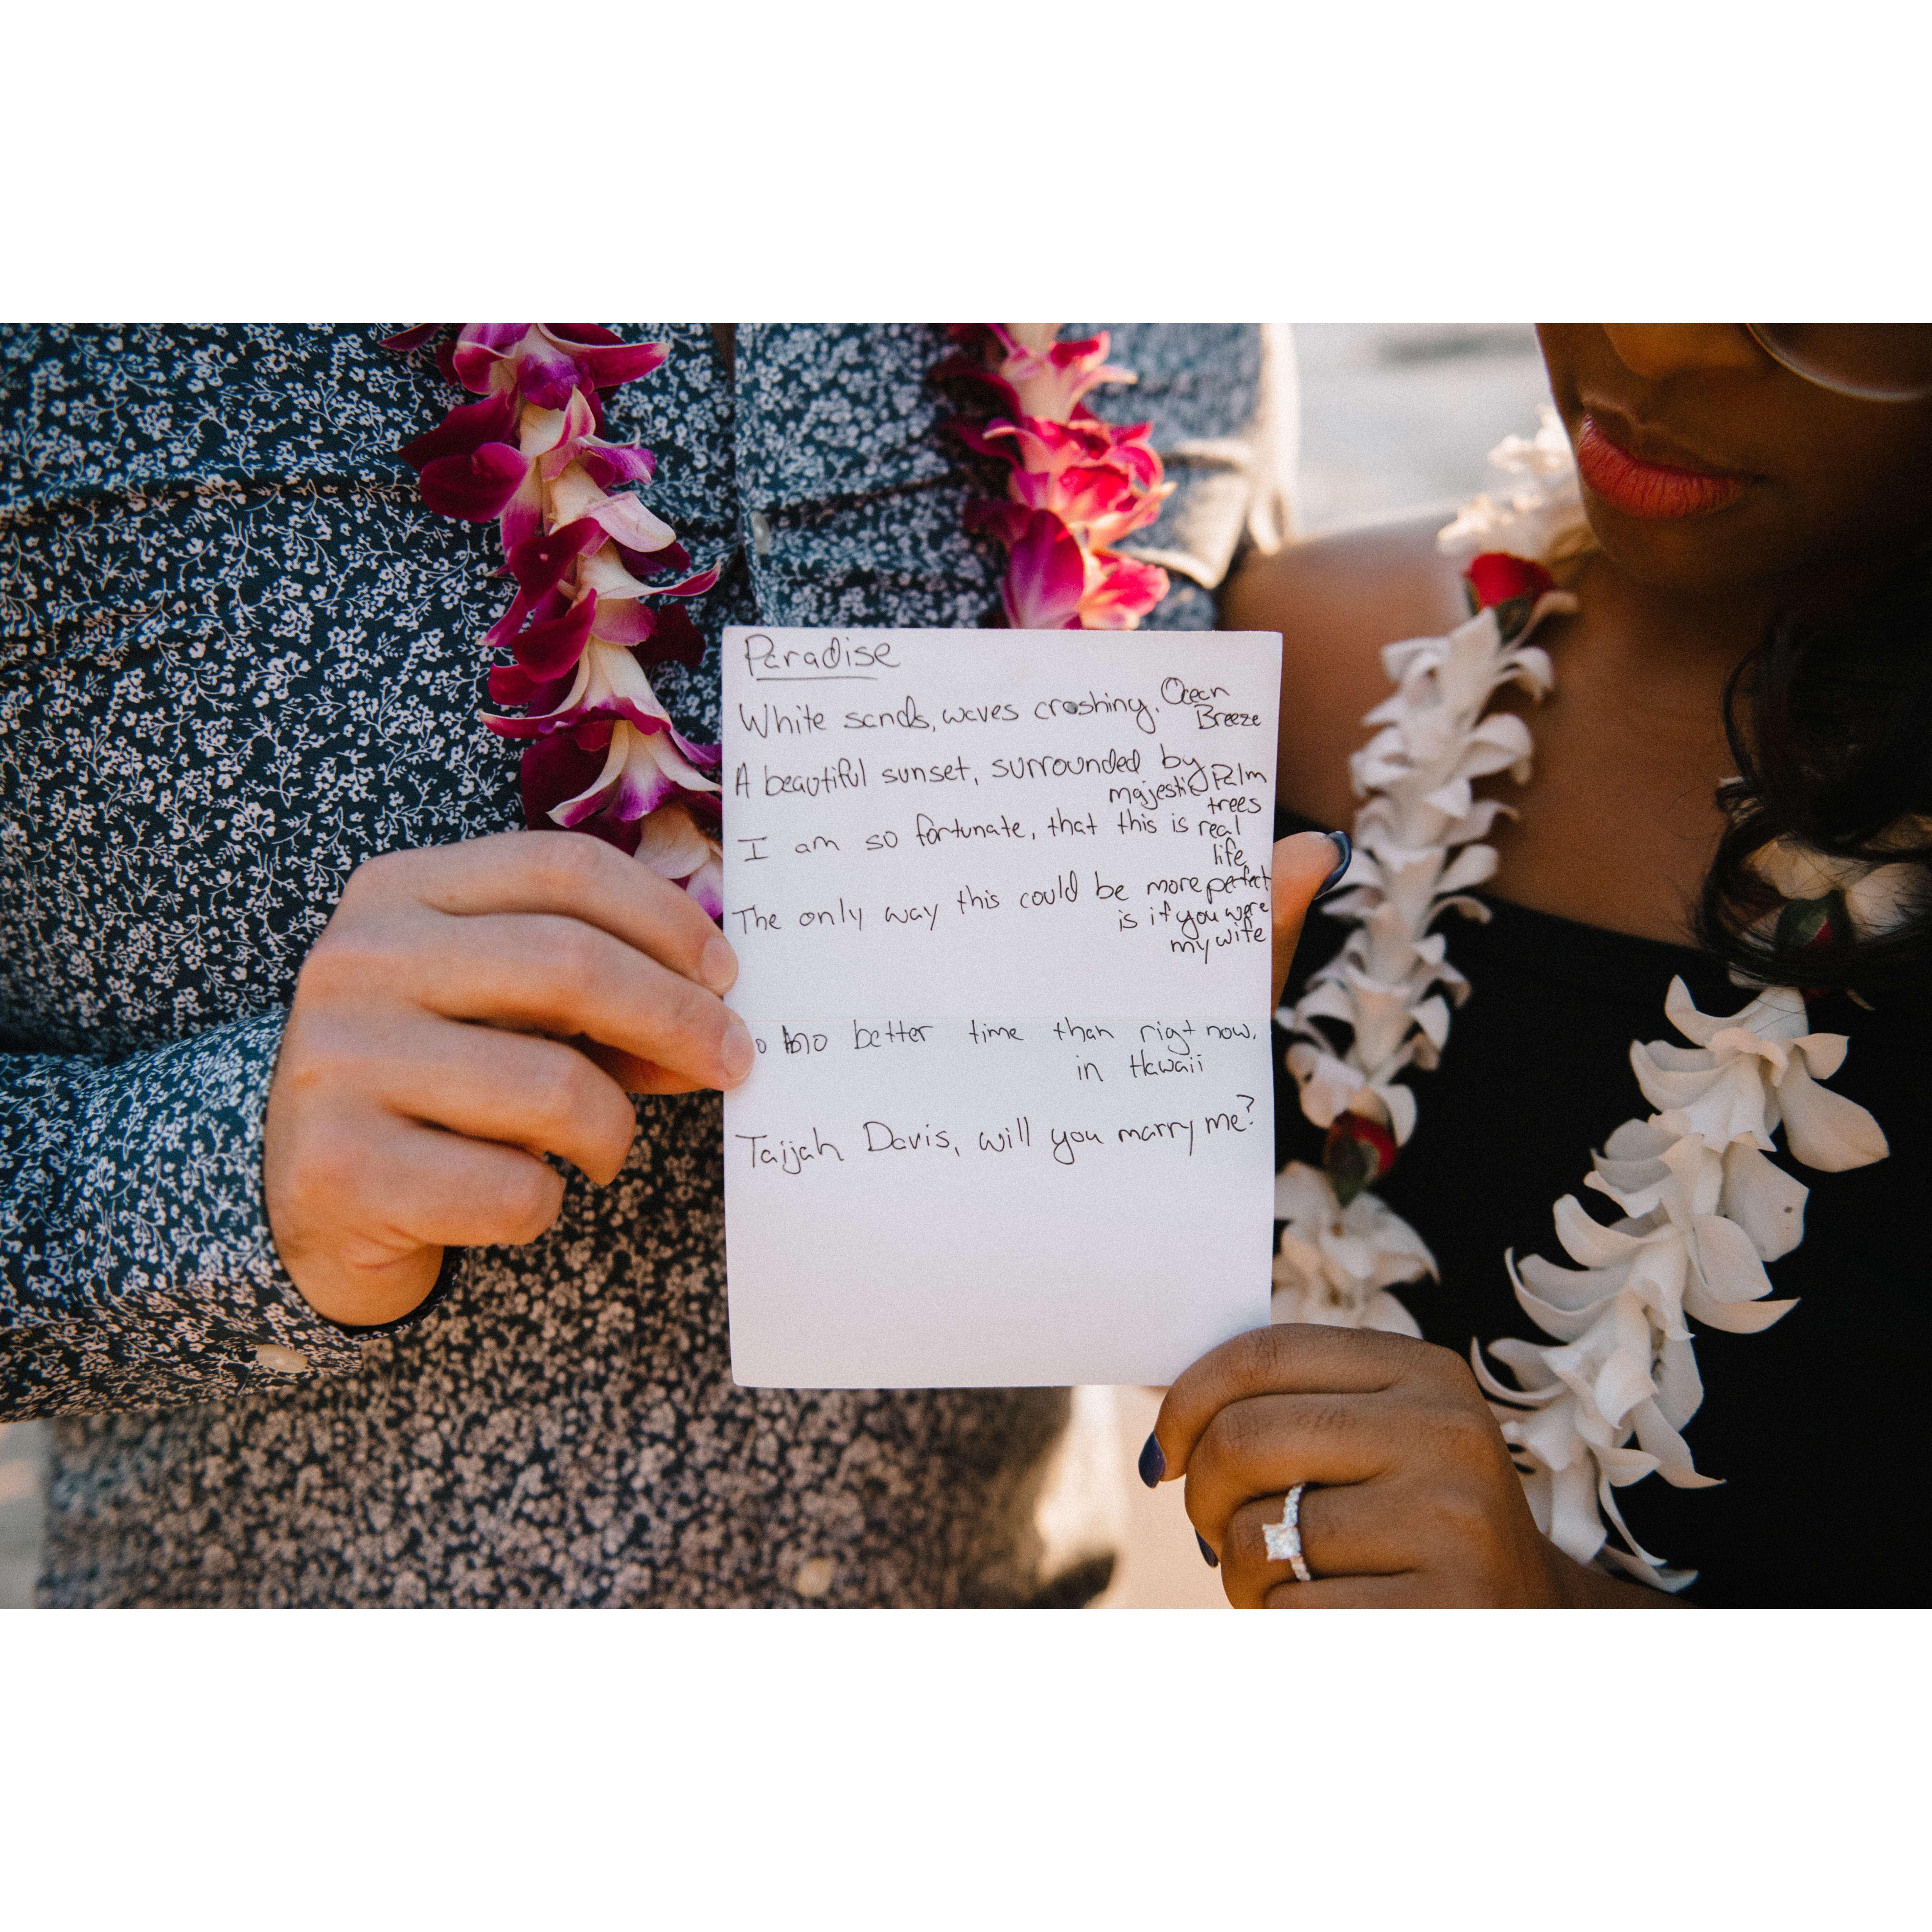 Paradise
White sands, waves crashing, Ocean
Breeze
A beautiful sunset, surrounded by
majestic Palm
trees
I am so fortunate, that this is real
life
The only way this could be more perfect
is if you were
my wife
no better time than right now,
in Hawaii
Taijah Davis, will you marry me?